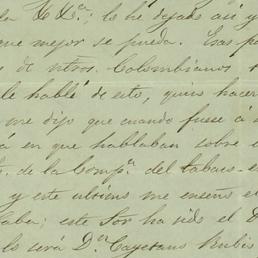 la E Da; lo he dejado así y
que mejor se pueda. Esas pa
s de ntros. Colombianos
le hablé de esto, quiso hacer
me dijo que cuando fuese á
rá en que hablaban sobre
de la Compa. del tabaco
y este ultimo me enseñó el
aba; este Sor ha sido el
lo será Dn Cayetano Rubio